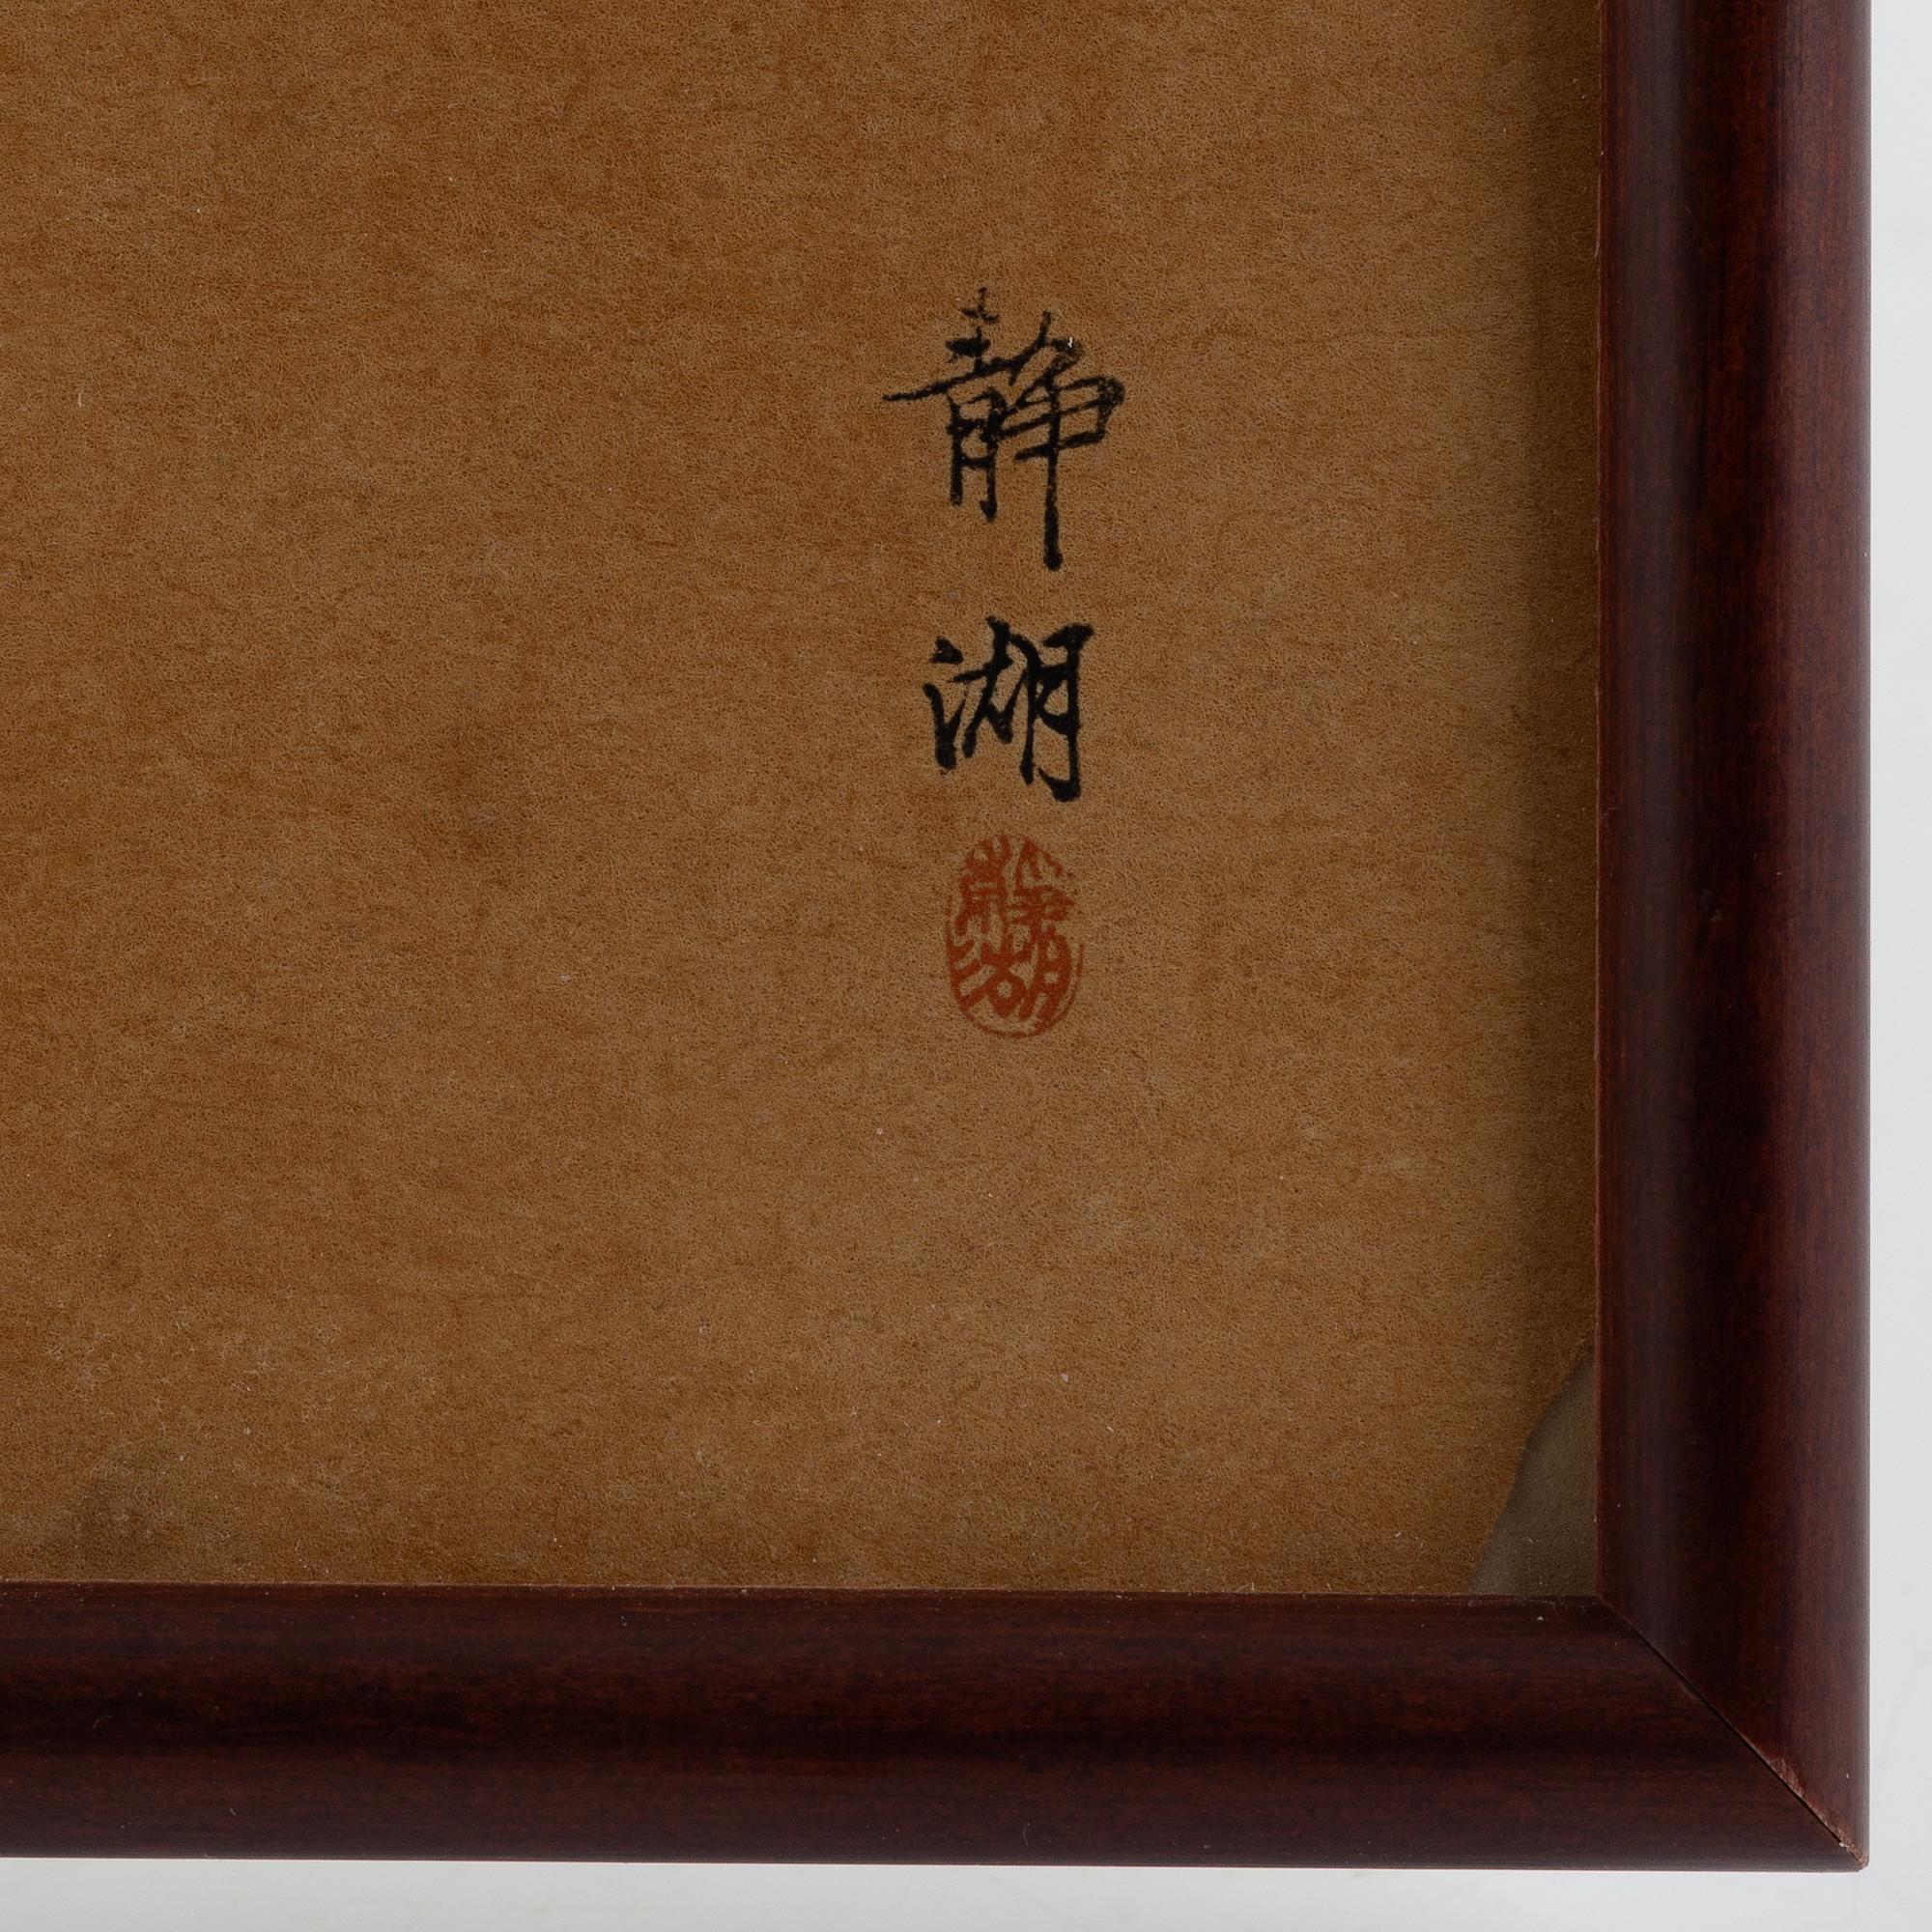 静湖
静湖